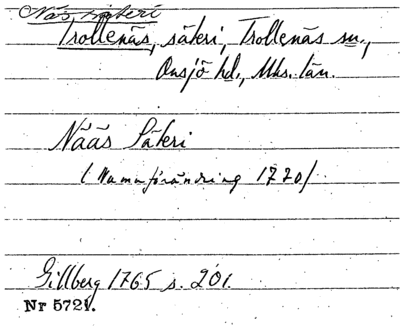 Näs, säteri
Trollenäs, säteri, Trollenäs sn.,
Onsjö hd., Mhs. län.
Nääs Säteri
(Namnförändring 1720)
Gillberg 1765 s. 201.
Nr 5721.